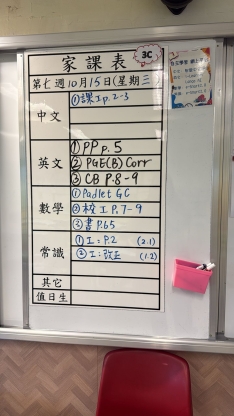 家課表
3C
第七週10月15日(星期三)
中文
①課工p.2-3
英文
①PP p.5
②PGE(B) Corr
③CB P.8-9
數學
①Padlet GC
②校工P.7-9
③書P.65
常識
①工:P.2 (2.1)
②工:改正 (1.2)
其它
值日生